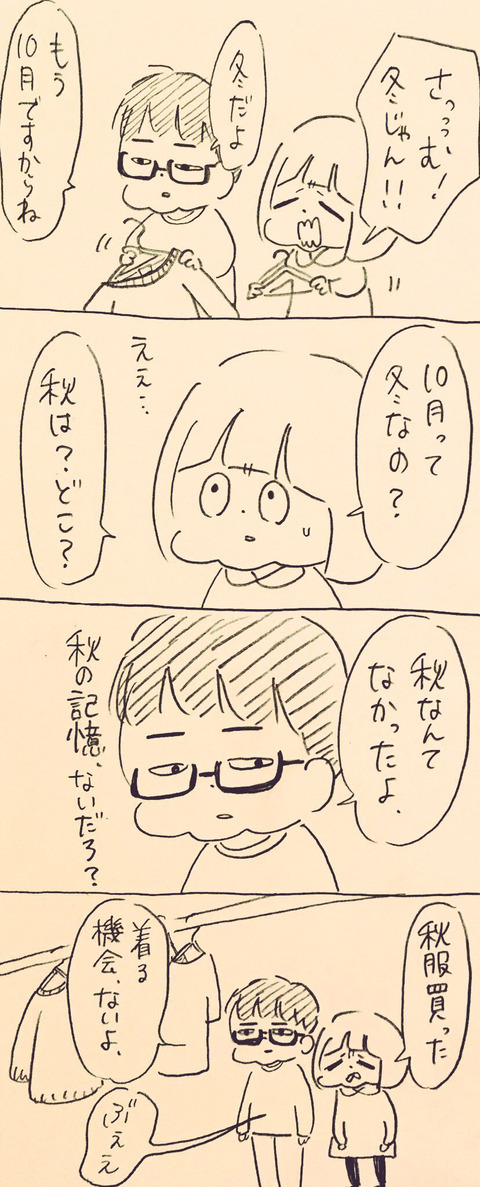 さっっっむ！
冬じゃん！！
冬だよ
もう
10月ですからね
10月って
冬なの？
ええ…
秋は？どこ？
秋なんて
なかったよ、
秋の記憶、ないだろ？
秋服買った
着る
機会、ないよ、
ぶええ